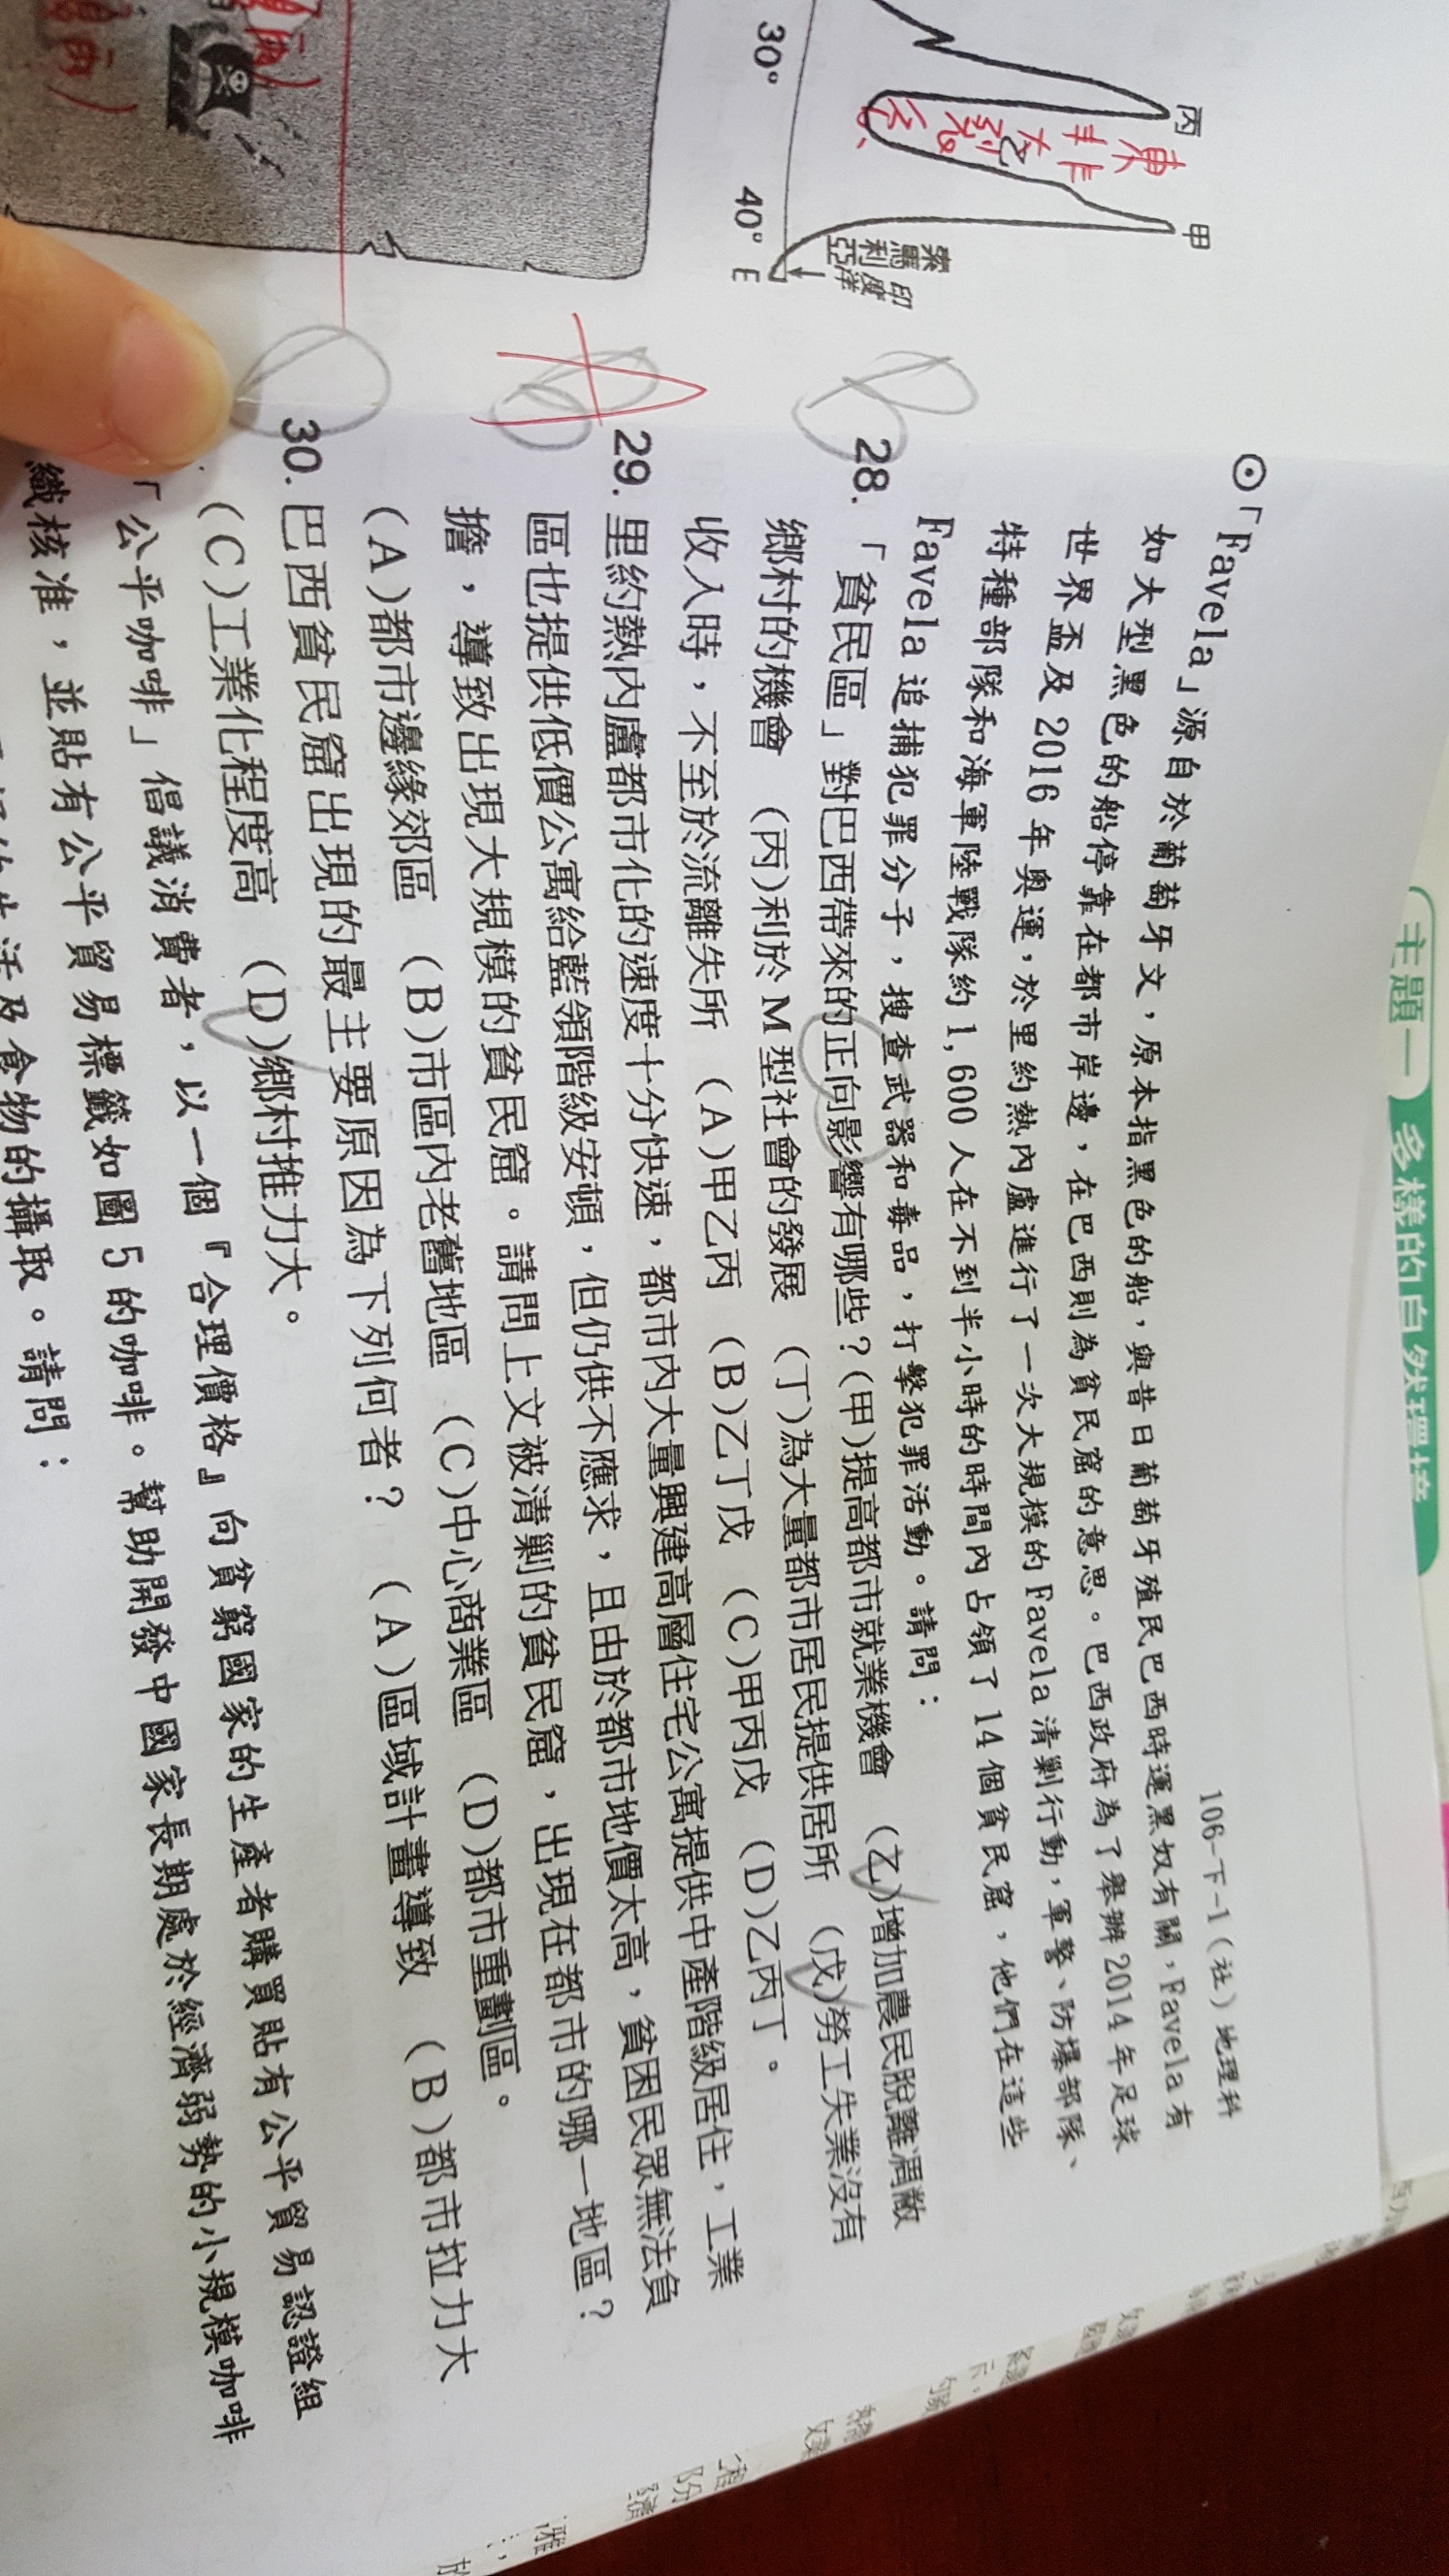 主題一 多樣的自然環境
106-下-1(社)地理科
⊙「Favela」源自於葡萄牙文,原本指黑色的船,與昔日葡萄牙殖民巴西時運黑奴有關,Favela 有
如大型黑色的船停靠在都市岸邊,在巴西則為貧民窟的意思。巴西政府為了舉辦 2014 年足球
世界盃及 2016 年奧運,於里約熱內盧進行了一次大規模的 Favela 清剿行動,軍警、防爆部隊、
特種部隊和海軍陸戰隊約 1,600 人在不到半小時的時間內占領了 14 個貧民窟,他們在這些
Favela 追捕犯罪分子,搜查武器和毒品,打擊犯罪活動。請問:
28.「貧民區」對巴西帶來的正向影響有哪些?(甲)提高都市就業機會 (乙)增加農民脫離凋敝
鄉村的機會 (丙)利於 M 型社會的發展 (丁)為大量都市居民提供居所 (戊)勞工失業沒有
收入時,不至於流離失所 (A)甲乙丙 (B)乙丁戊 (C)甲丙戊 (D)乙丙丁。
29. 里約熱內盧都市化的速度十分快速,都市內大量興建高層住宅公寓提供中產階級居住,工業
區也提供低價公寓給藍領階級安頓,但仍供不應求,且由於都市地價太高,貧困民眾無法負
擔,導致出現大規模的貧民窟。請問上文被清剿的貧民窟,出現在都市的哪一地區?
(A)都市邊緣郊區 (B)市區內老舊地區 (C)中心商業區 (D)都市重劃區。
30. 巴西貧民窟出現的最主要原因為下列何者? (A)區域計畫導致 (B)都市拉力大
(C)工業化程度高 (D)鄉村推力大。
「公平咖啡」倡議消費者,以一個『合理價格』向貧窮國家的生產者購買貼有公平貿易認證組
織核准,並貼有公平貿易標籤如圖 5 的咖啡。幫助開發中國家長期處於經濟弱勢的小規模咖啡
生活及食物的攝取。請問:
丙
甲
東非大裂谷
索馬利亞
印度洋
30°
40° E
A